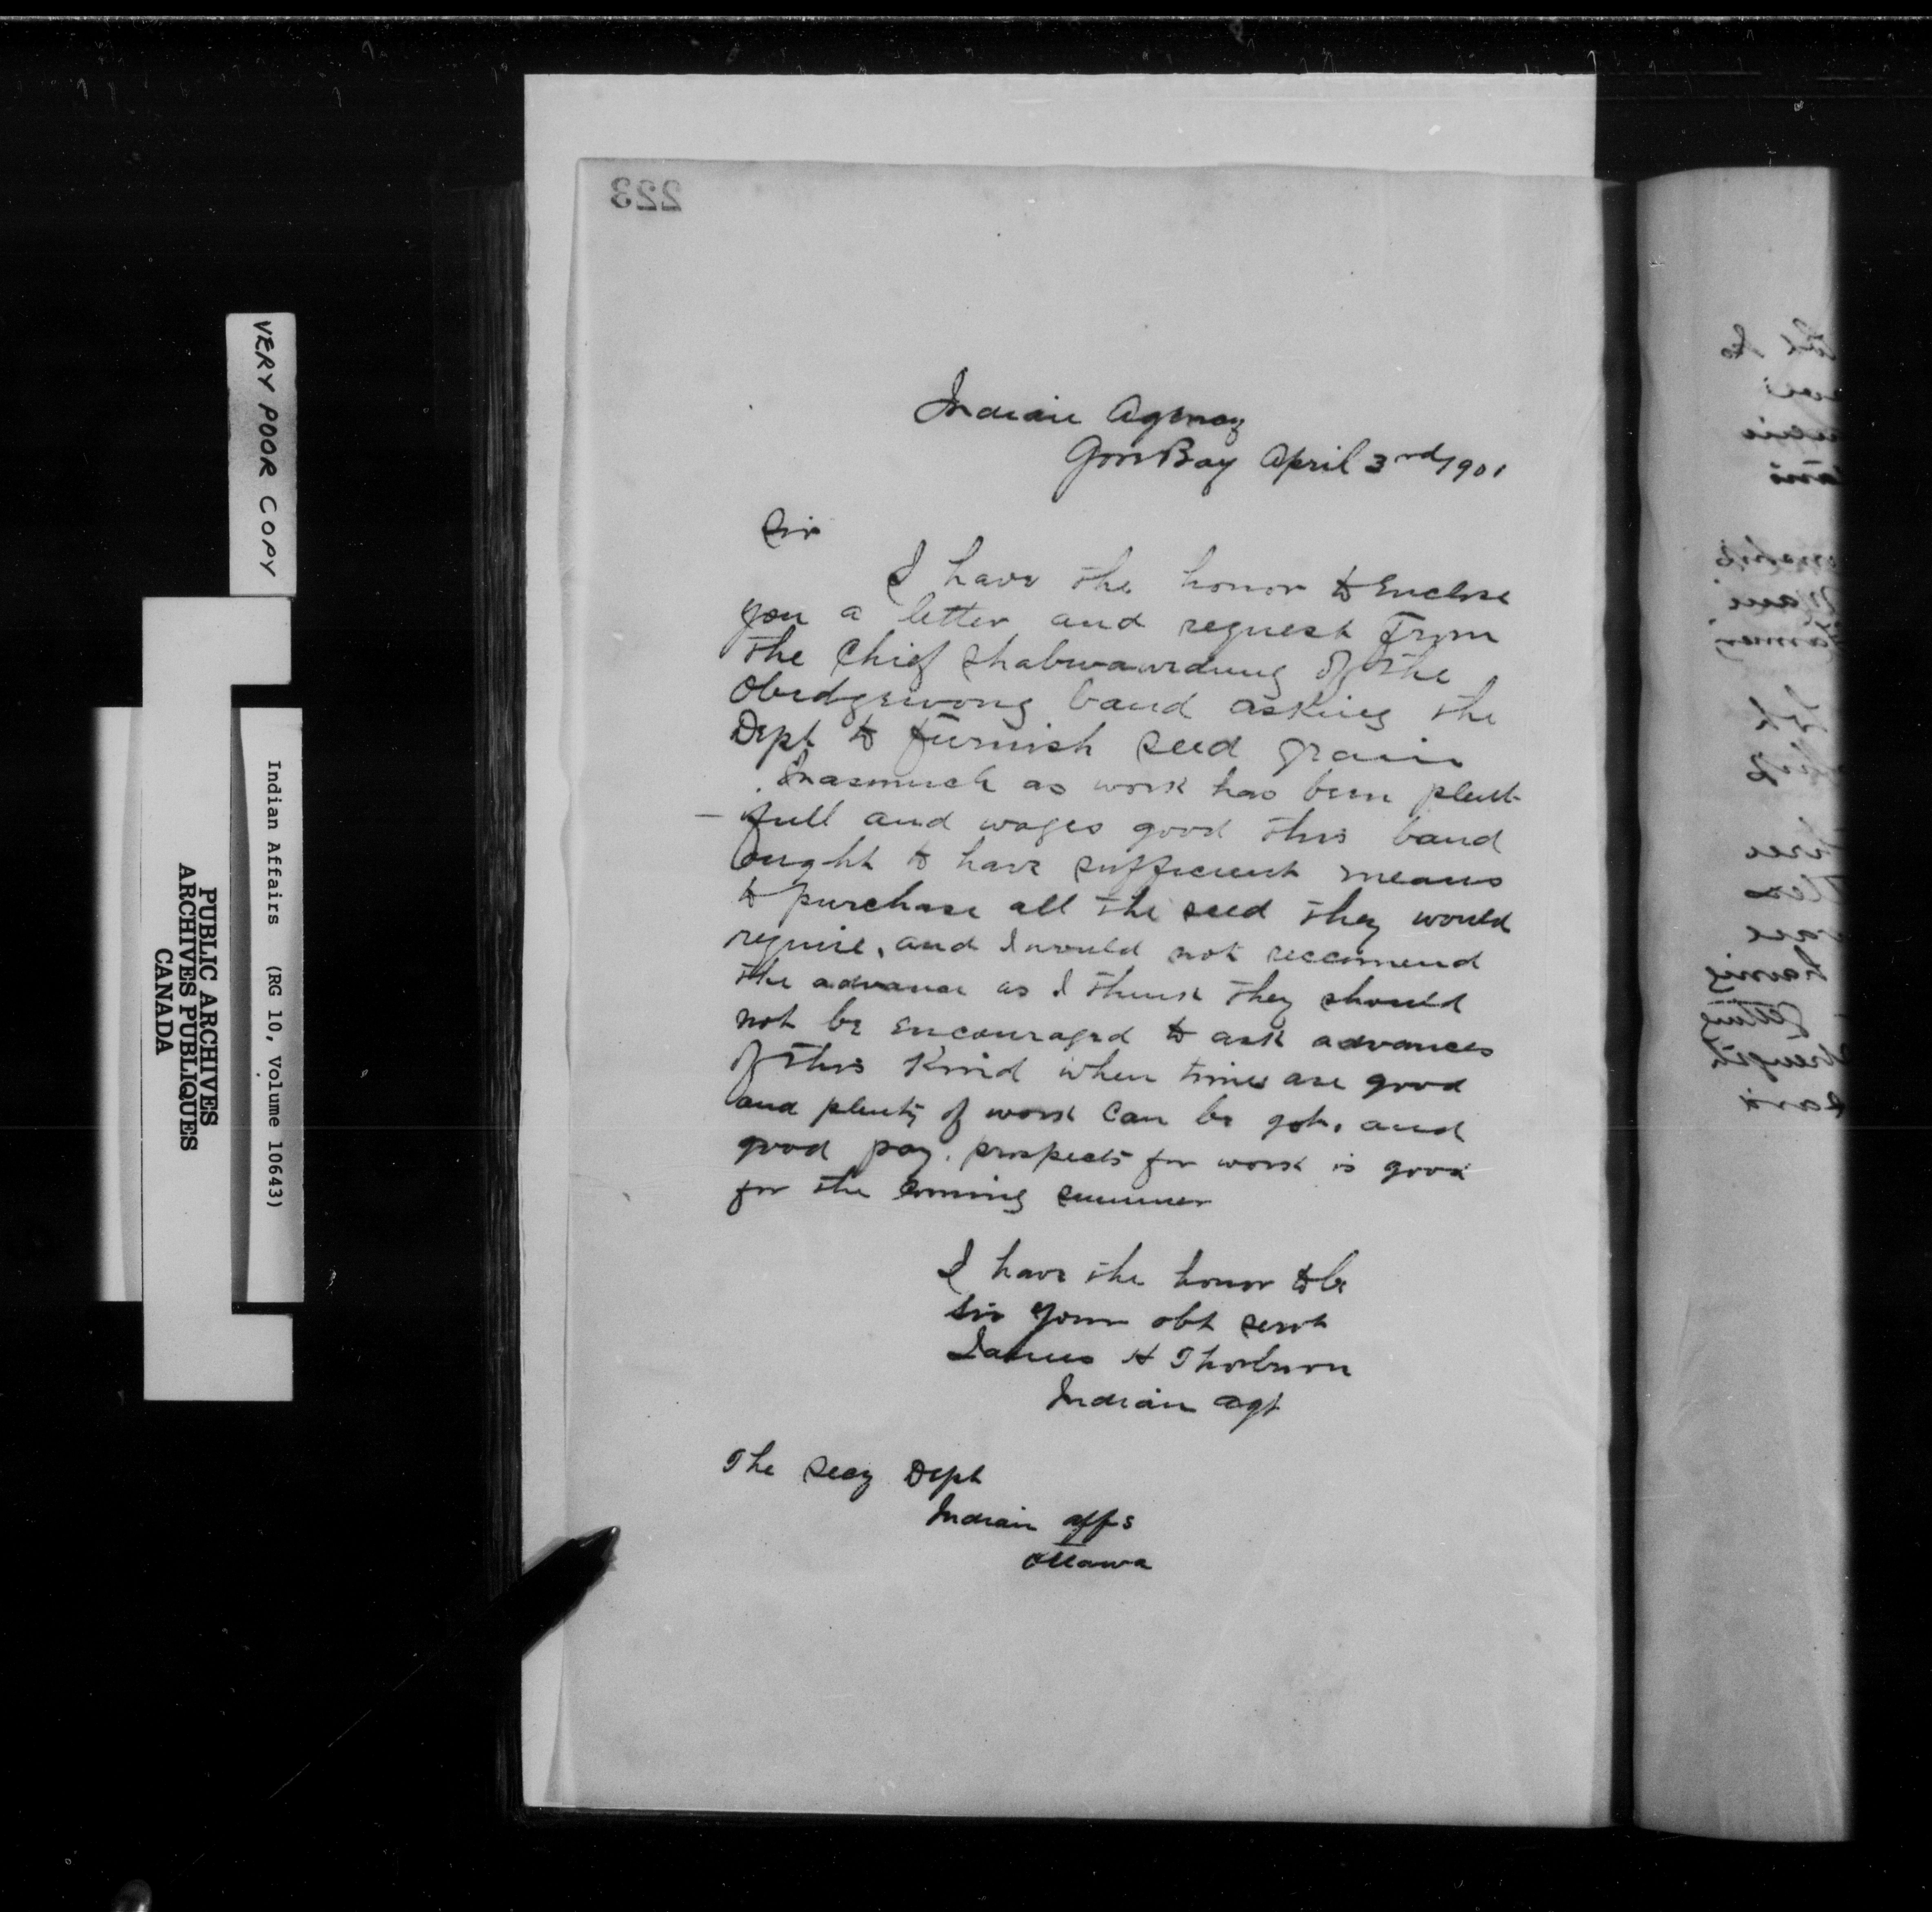 223
Indian Agency
Gore Bay April 3rd/1901
Sir
I have the honor to Enclose
you a letter and request From
The Chief Shabwawrdung of The
Obedgewong band asking The
Dept to furnish seed grain
Inasmuch as work has been plent-
-full and wages good This band
ought to have sufficient means
to purchase all The seed They would
require, and I would not reccomend
The advance as I Think They should
not be Encouraged to ask advances
of This Kind when times are good
and plenty of work Can be got, and
good pay, prospects for work is good
for The Coming summer
I have The honor to be
Sir Your obt servt
James H Thorburn
Indian Agt
The Secy Dept
Indian Affs
Ottawa
VERY POOR COPY
Indian Affairs (RG 10, Volume 10643)
PUBLIC ARCHIVES
ARCHIVES PUBLIQUES
CANADA